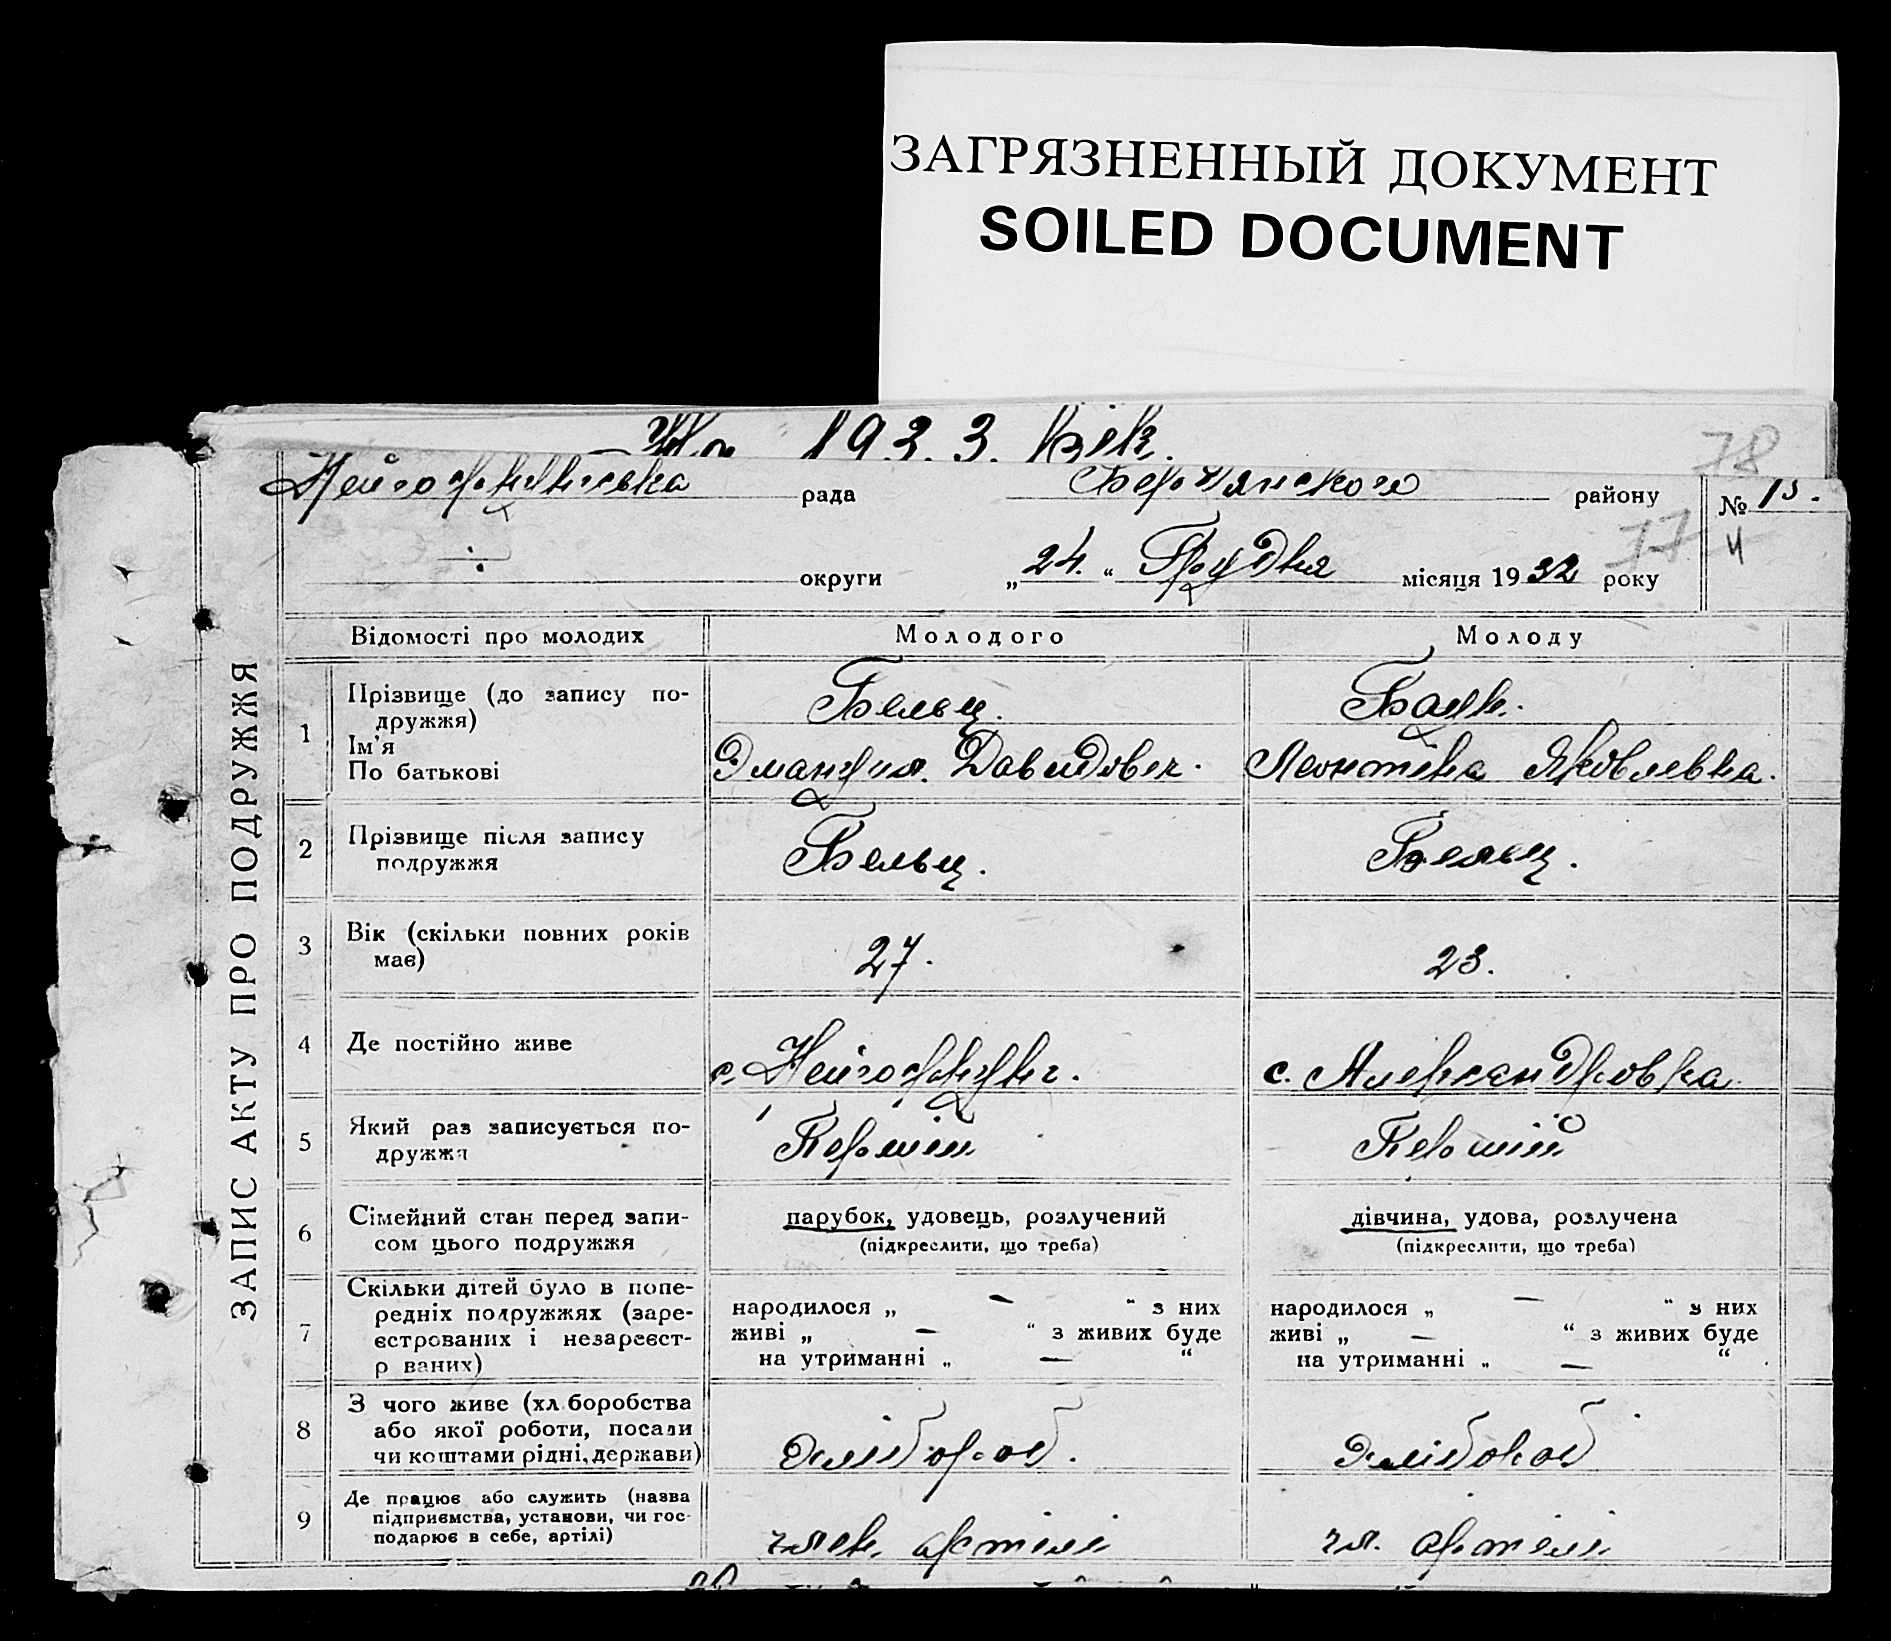 ЗАГРЯЗНЕННЫЙ ДОКУМЕНТ
SOILED DOCUMENT
На 1933 рік.
78
рада Бердянского району № 15.
77 4
округи „24.“ Грудня місяця 1932 року
ЗАПИС АКТУ ПРО ПОДРУЖЖЯ
Відомості про молодих Молодого Молоду
1 Прізвище (до запису по-
дружжя)
Ім'я
По батькові
Бельц.
Давидович.
Леонтіна Яковлевна.
2 Прізвище після запису
подружжя
Бельц. Бельц.
3 Вік (скільки повних років
має)
27. 23.
4 Де постійно живе
с. Нейгофнунг. с. Александровка
5 Який раз записується по-
дружжя
Перший Перший
6 Сімейний стан перед запи-
сом цього подружжя
парубок, удовець, розлучений
(підкреслити, що треба)
дівчина, удова, розлучена
(підкреслити, що треба)
7 Скільки дітей було в попе-
редніх подружжях (заре-
єстрованих і незареєст-
р ваних)
народилося „ — “ з них
живі „ — “ з живих буде
на утриманні „ — “
народилося „ — “ з них
живі „ — “ з живих буде
на утриманні „ — “
8 З чого живе (хл боробства
або якої роботи, посади
чи коштами рідні, держави)
хлібороб. хлібороб
9 Де працює або служить (назва
підприємства, установи, чи гос-
подарює в себе, артілі)
член. артілі чл. артілі